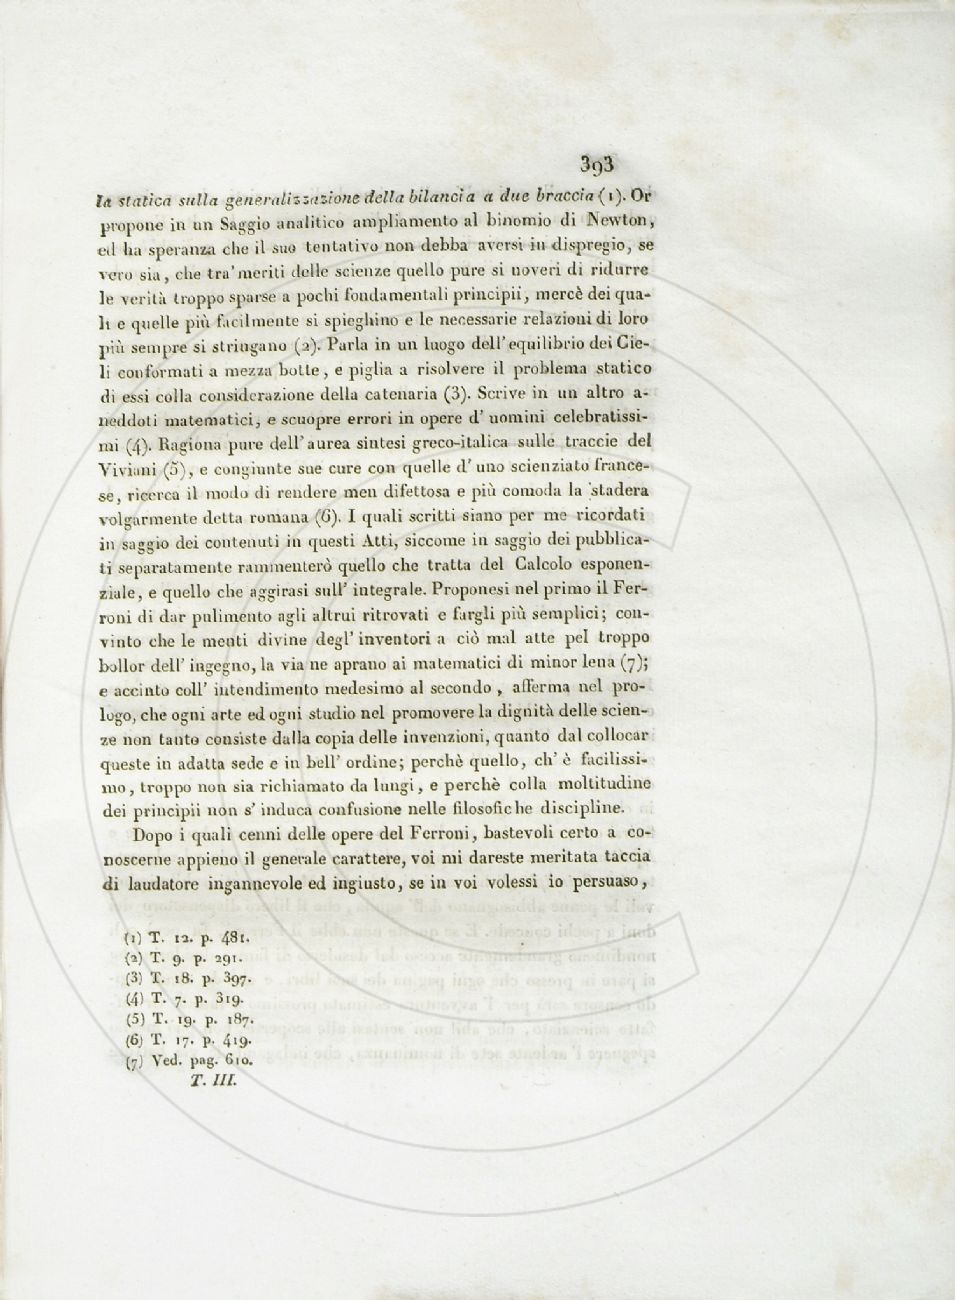 393
la statica sulla generalizzazione della bilancia a due braccia (1). Or
propone in un Saggio analitico ampliamento al binomio di Newton,
ed ha speranza che il suo tentativo non debba aversi in dispregio, se
vero sia, che tra' meriti delle scienze quello pure si noveri di ridurre
le verità troppo sparse a pochi fondamentali principii, mercè dei qua-
li e quelle più facilmente si spieghino e le necessarie relazioni di loro
più sempre si stringano (2). Parla in un luogo dell' equilibrio dei Cie-
li conformati a mezza botte, e piglia a risolvere il problema statico
di essi colla considerazione della catenaria (3). Scrive in un altro a-
neddoti matematici, e scuopre errori in opere d' uomini celebratissi-
mi (4). Ragiona pure dell' aurea sintesi greco-italica sulle traccie del
Viviani (5), e congiunte sue cure con quelle d' uno scienziato france-
se, ricerca il modo di rendere men difettosa e più comoda la stadera
volgarmente detta romana (6). I quali scritti siano per me ricordati
in saggio dei contenuti in questi Atti, siccome in saggio dei pubblica-
ti separatamente rammenterò quello che tratta del Calcolo esponen-
ziale, e quello che aggirasi sull' integrale. Proponesi nel primo il Fer-
roni di dar pulimento agli altrui ritrovati e fargli più semplici; con-
vinto che le menti divine degl' inventori a ciò mal atte pel troppo
bollor dell' ingegno, la via ne aprano ai matematici di minor lena (7);
e accinto coll' intendimento medesimo al secondo, afferma nel pro-
logo, che ogni arte ed ogni studio nel promovere la dignità delle scien-
ze non tanto consiste dalla copia delle invenzioni, quanto dal collocar
queste in adatta sede e in bell' ordine; perchè quello, ch' è facilissi-
mo, troppo non sia richiamato da lungi, e perchè colla moltitudine
dei principii non s' induca confusione nelle filosofiche discipline.
Dopo i quali cenni delle opere del Ferroni, bastevoli certo a co-
noscerne appieno il generale carattere, voi mi dareste meritata taccia
di laudatore ingannevole ed ingiusto, se in voi volessi io persuaso,
(1) T. 12. p. 481.
(2) T. 9. p. 291.
(3) T. 18. p. 397.
(4) T. 7. p. 319.
(5) T. 19. p. 187.
(6) T. 17. p. 419.
(7) Ved. pag. 610.
T. III.